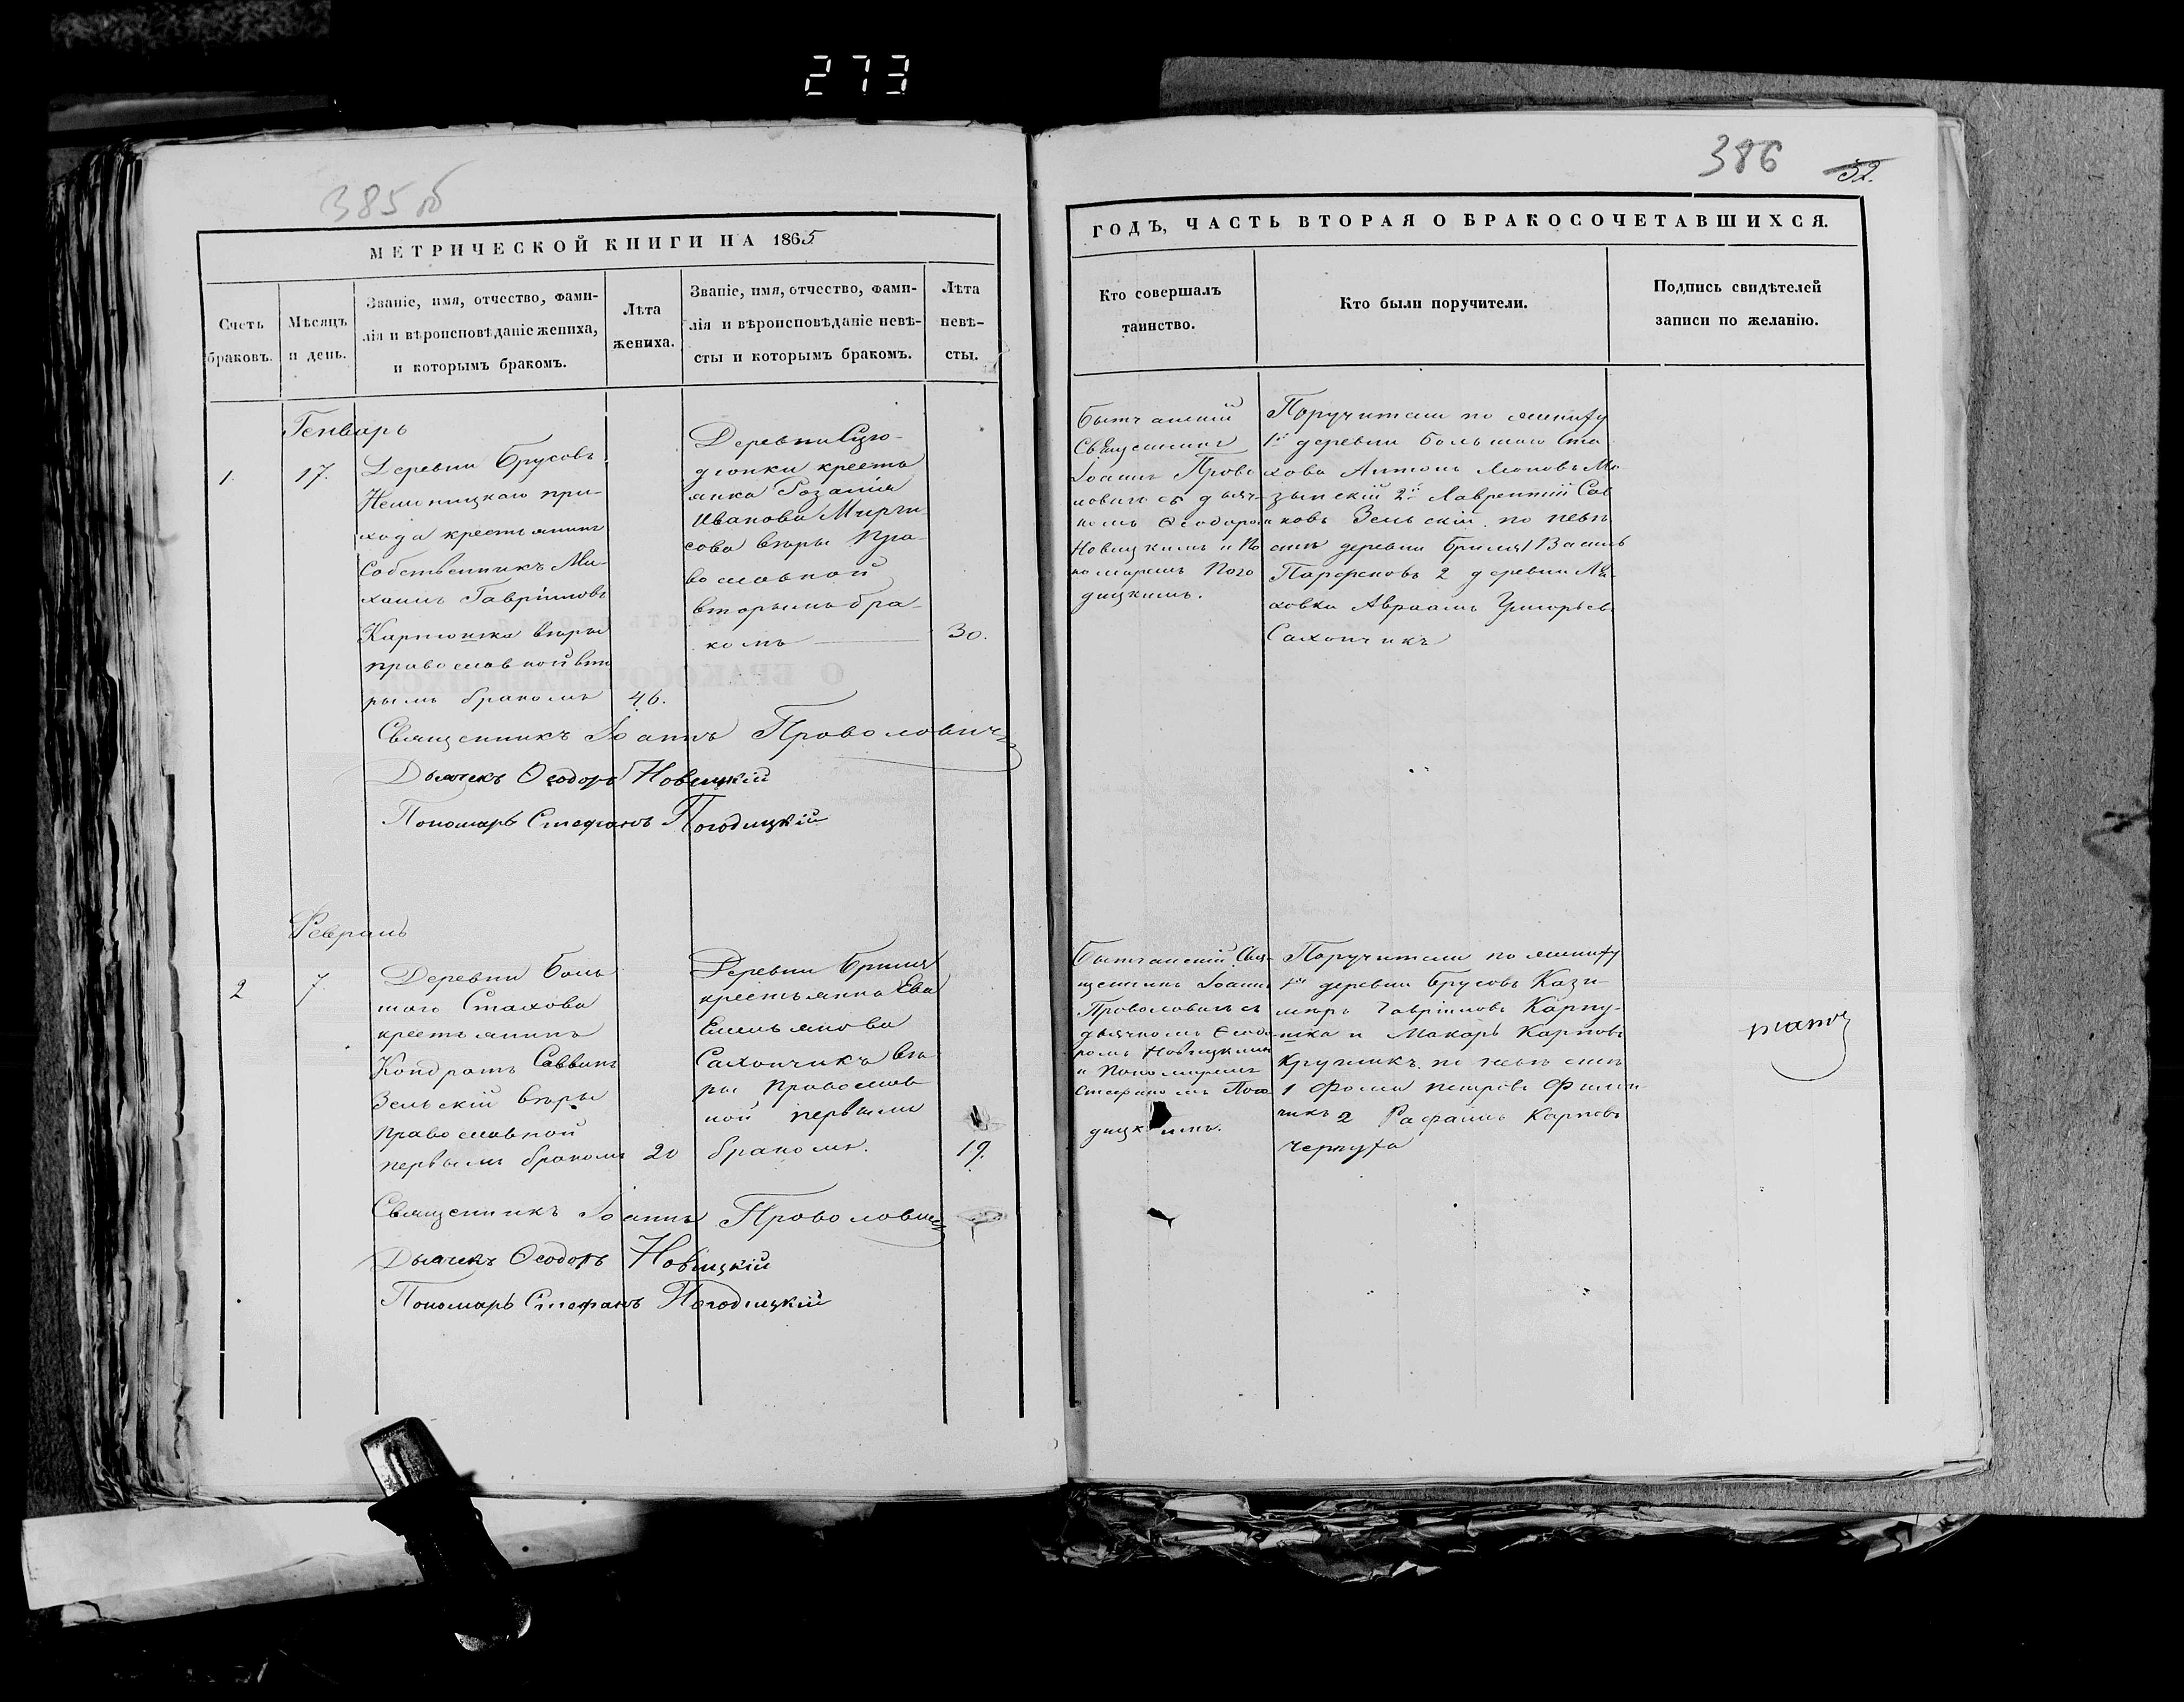 273
385 об
386
52.
МЕТРИЧЕСКОЙ КНИГИ НА 1865
Счетъ
браковъ.
Мѣсяцъ
и день.
Званіе, имя, отчество, фами-
лія и вѣроисповѣданіе жениха,
и которымъ бракомъ.
Лѣта
жениха.
Званіе, имя, отчество, фами-
лія и вѣроисповѣданіе невѣ-
сты и которымъ бракомъ.
Лѣта
невѣ-
сты.
ГОДЪ, ЧАСТЬ ВТОРАЯ О БРАКОСОЧЕТАВШИХСЯ.
Кто совершалъ
таинство.
Кто были поручители.
Подпись свидѣтелей
записи по желанію.
Генварь
1.
17.
Деревни Брусовъ
приход
хода крестьянинъ
Собственникъ Ми-
хаилъ Гавріиловъ
Карпюшка вѣры
православной вто
рымъ бракомъ
46.
Деревни
крестья
янка Розалія
Иванова
сова вѣры пра-
вославной
вторымъ бра-
комъ
30.
Бытчанскій
Священникъ
Іоаннъ Прово
ловичъ съ дьяч-
комъ Ѳеодоромъ
Новицкимъ и По
номаремъ Пого
дицкимъ.
Поручители по жениху
1й деревни Большаго Ста
хова Антонъ
2й Лаврентій Сав
ковъ Зельскій по невѣ
стѣ деревни Бриля 1 Василь
Парфеновъ 2 деревни
Авраамъ Григорьевъ
Сахончикъ
Священникъ Іоаннъ Проволовичъ
Дьячекъ Ѳеодоръ Новицкій
Пономарь Стефанъ Погодицкій
Февраль
2
7
Деревни Боль
шаго Стахова
крестьянинъ
Кондратъ Саввинъ
Зельскій вѣры
православной
первымъ бракомъ
20
Деревни Бриля
крестьянка Ева
Емельянова
Сахончикъ вѣ
ры православ
ной первымъ
бракомъ.
19.
Бытчанскій Свя-
щенникъ Іоаннъ
Проволовичъ съ
дьячкомъ Ѳеодо
ромъ Новицкимъ
и Пономаремъ
Стефаномъ Пого
дицкимъ.
Поручители по жениху
1й деревни Брусовъ Кази-
миръ Гавріиловъ Карпу-
шка и Макаръ Карповъ
Кругликъ по невѣстѣ
1 Фома Петровъ
чикъ 2 Рафаилъ Карповъ
Чернуха
Священникъ Іоаннъ Проволовичъ
Дьячекъ Ѳеодоръ Новицкій
Пономарь Стефанъ Погодицкій